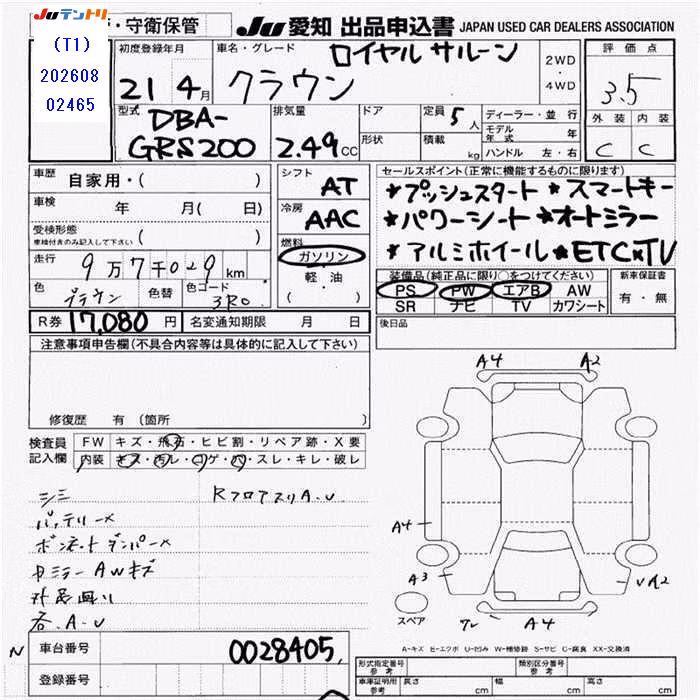 Juテントリ ・守衛保管
(T1)
202608
02465
Ju 愛知 出品申込書 JAPAN USED CAR DEALERS ASSOCIATION
初度登録年月 車名・グレード ロイヤルサルーン 2WD ・ 4WD 評価点
21 4月 クラウン 3.5
型式 DBA-GRS200 排気量 2.49 CC ドア 形状 定員 5人 積載 kg
ディーラー・並行
モデル年式 年
ハンドル 左・右
外装 内装
C C
車歴 自家用・( )
シフト AT
セールスポイント(正常に機能するものに限ります)
車検 年 月( 日)
冷房 AAC
★プッシュスタート★スマートキー
★パワーシート★オートミラー
★アルミホイール★ETC★TV
受検形態 車検付きのみ記入して下さい ( )
燃料 ガソリン
軽・油
( ・ )
走行 9万7千029km
色 ブラウン 色替 色コード 3R0
装備品(純正品に限り○をつけてください) 新車保証書
PS PW エアB AW 有・無
SR ナビ TV カワシート
R券 17,080円 名変通知期限 月 日
後日品
注意事項申告欄(不具合内容等は具体的に記入して下さい)
修復歴 有(箇所 )
検査員記入欄 FW キズ・飛石・ヒビ割・リペア跡・X要
内装 キズ・汚レ・コゲ・穴・スレ・キレ・破レ
シミ RフロアスリA.U
バッテリー×
ボンネットダンパー×
ミラーAWキズ
各A.U
A4 A2
A4
A3 A4 A2
スペア
A-キズ E-エクボ U-凹み W-補修跡 S-サビ C-腐食 XX-交換済
N 車台番号 0028405
登録番号
形式指定番号 参考 類別区分番号 参考
車庫証明用 参考 長さ cm 幅 cm 高さ cm